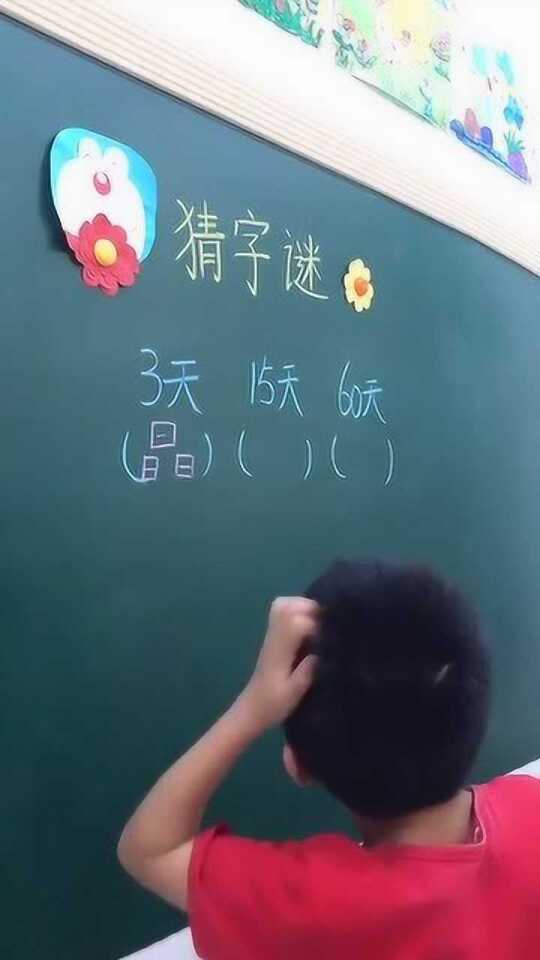 猜字谜
3天 15天 60天
(晶) ( ) ( )